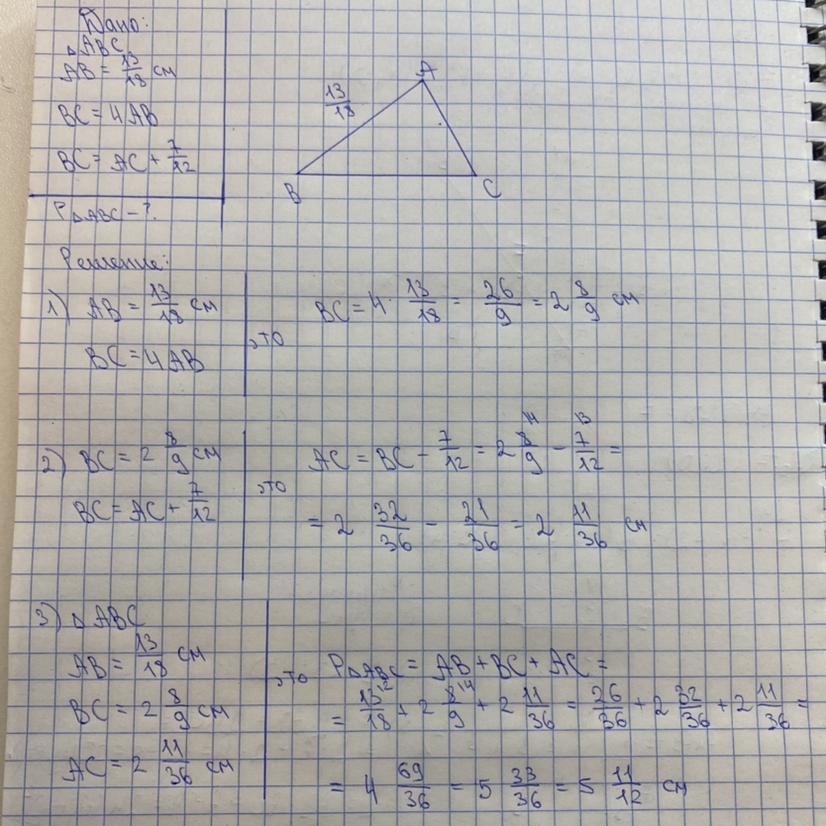 Дано:
△ABC
AB = 13/18 см
BC = 4AB
BC = AC + 7/12
P△ABC - ?
A
13/18
B
C
Решение:
1) AB = 13/18 см
BC = 4AB
, то
BC = 4 · 13/18 = 26/9 = 2 8/9 см
2) BC = 2 8/9 см
BC = AC + 7/12
, то
AC = BC - 7/12 = 2 8/9 \4 - 7/12 \3 =
= 2 32/36 - 21/36 = 2 11/36 см
3) △ABC
AB = 13/18 см
BC = 2 8/9 см
AC = 2 11/36 см
, то
P△ABC = AB + BC + AC =
= 13/18 \2 + 2 8/9 \4 + 2 11/36 = 26/36 + 2 32/36 + 2 11/36 =
= 4 69/36 = 5 33/36 = 5 11/12 см